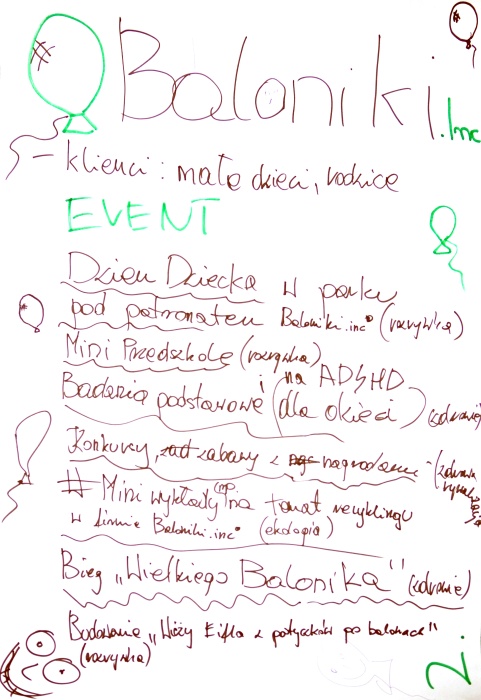 Baloniki.Inc
– klienci: małe dzieci, rodzice
EVENT
Dzień Dziecka w parku
pod patronatem Baloniki.inc® (rozrywka)
Mini Przedszkole (rozrywka)
Badania podstawowe i na ADSHD (dla dzieci) (zdrowie)
Konkursy, zabawy z nagrodami (zdrowa rywalizacja)
# Mini wykłady (np. na temat recyklingu
w firmie Baloniki.inc® (ekologia)
Bieg „Wielkiego Balonika" (zdrowie)
Budowanie „Wieży Eifla z patyczków po balonach"
(rozrywka)